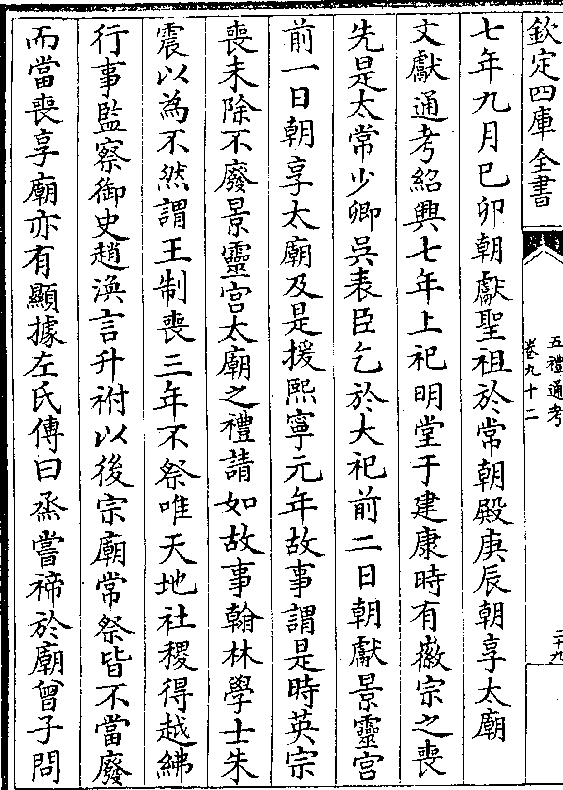 欽定四庫全書
五禮通考
卷九十二
二十九
七年九月已卯朝獻聖祖於常朝殿庚辰朝享太廟
文獻通考紹興七年上祀明堂于建康時有徽宗之喪
先是太常少卿吳表臣乞於大祀前二日朝獻景靈宮
前一日朝享太廟及是援熙寧元年故事謂是時英宗
喪未除不廢景靈宮太廟之禮請如故事翰林學士朱
震以為不然謂王制喪三年不祭唯天地社稷得越紼
行事監察御史趙渙言升祔以後宗廟常祭皆不當廢
而當喪享廟亦有顯據左氏傳曰烝嘗禘於廟曾子問